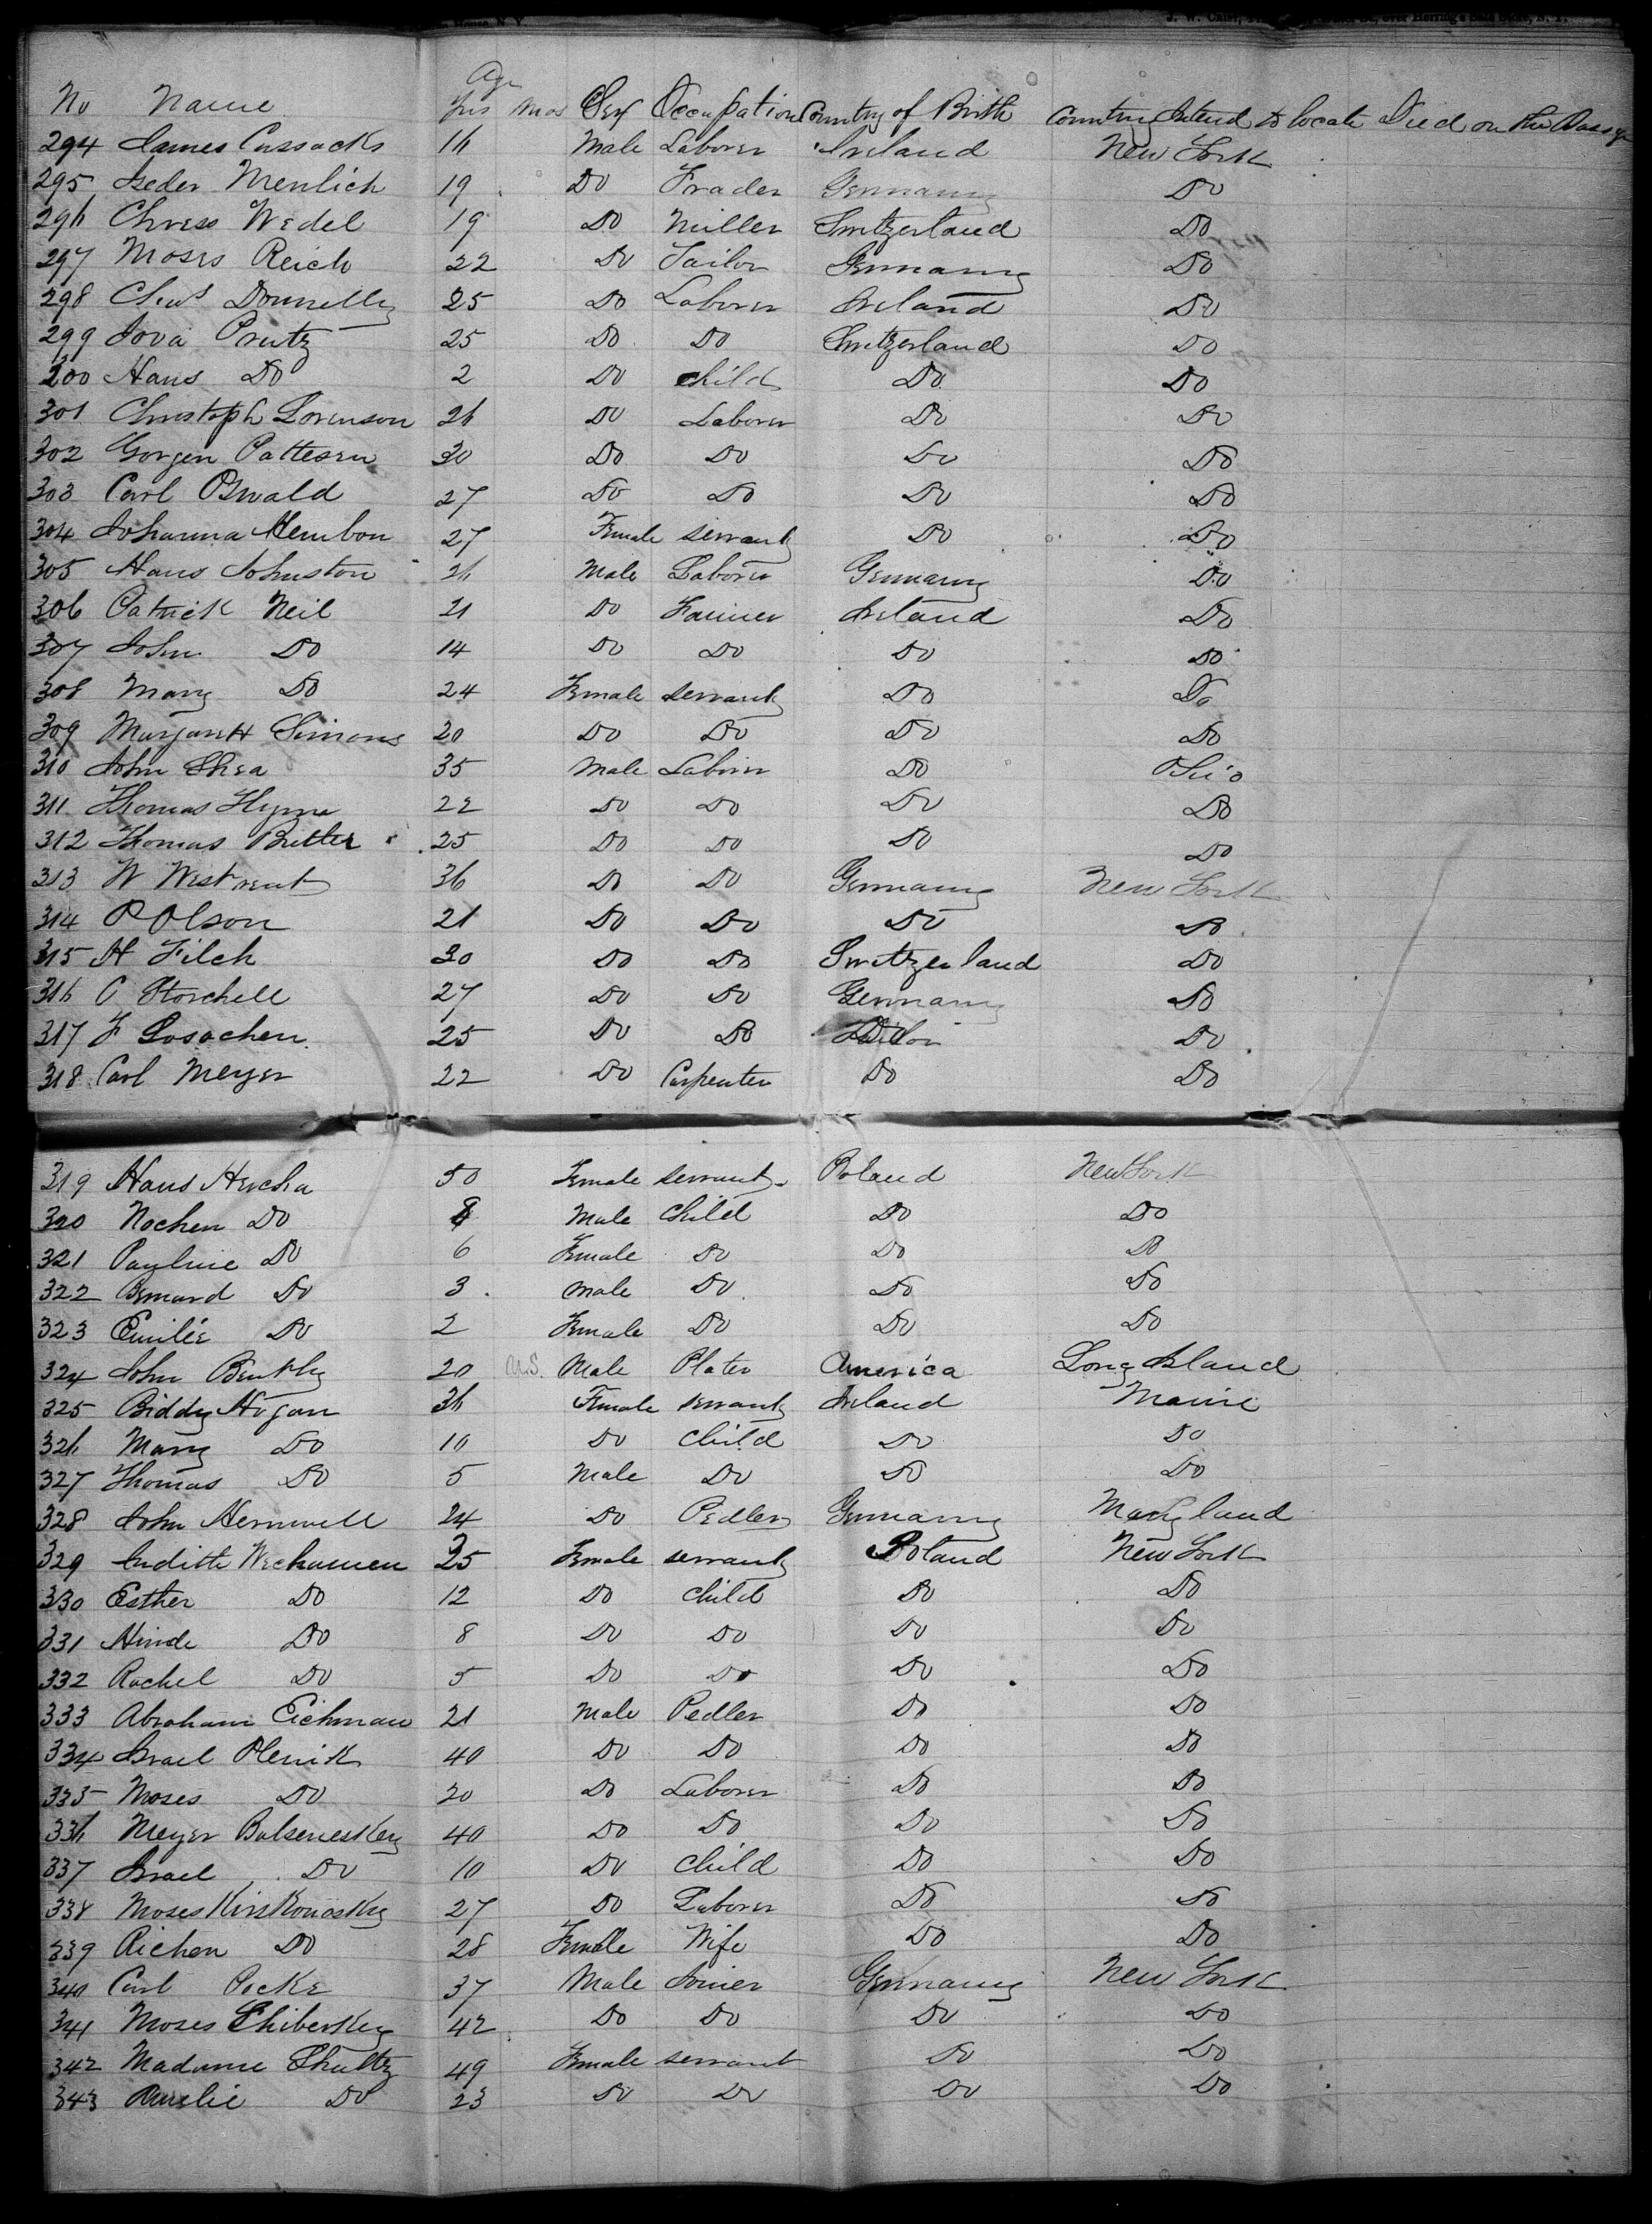 House N.Y.
Age
No Name yrs mos Sex Occupation Country of Birth Country Intend to locate Died on the Passage
294 James Cussacks 16 Male Laborer Ireland New York
295 Iseder Menlich 19 Do Trader Germany Do
296 Chress Wedel 19 Do Miller Switzerland Do
297 Moses Reich 22 Do Tailor Germany Do
298 Chas Donnelly 25 Do Laborer Ireland Do
299 Jova Prutz 25 Do Do Switzerland Do
200 Hans Do 2 Do child Do Do
301 Christoph Lorenson 26 Do Laborer Do Do
302 Gorgen Pattesen 30 Do Do Do Do
303 Carl Oswald 27 Do Do Do Do
304 Johanna Hembon 27 Female servant Do Do
305 Hans Johnston 26 Male Laborer Germany Do
306 Patrick Neil 21 Do Farmer Ireland Do
307 John Do 14 Do Do Do Do
308 Mary Do 24 Female servant Do Do
309 Margarett Simons 20 Do Do Do Do
310 John Shea 35 Male Laborer Do Ohio
311 Thomas Flynn 22 Do Do Do Do
312 Thomas Butler 25 Do Do Do Do
313 W Westrent 36 Do Do Germany New York
314 P Olson 21 Do Do Do Do
315 H Filch 30 Do Do Switzerland Do
316 C Storchell 27 Do Do Germany Do
317 F Losochen 25 Do Do Do Do
318 Carl Meyer 22 Do Carpenter Do Do
319 Hans Hercha 50 Female servant Poland New York
320 Nochen Do 8 Male Child Do Do
321 Payline Do 6 Female Do Do Do
322 Bernard Do 3 male Do Do Do
323 Emilie Do 2 Female Do Do Do
324 John Bentley 20 U.S. Male Plater America Long Island
325 Biddy Hogan 36 Female servant Ireland Maine
326 Mary Do 10 Do Child Do Do
327 Thomas Do 5 Male Do Do Do
328 John Hernwell 24 Do Pedler Germany Maryland
329 Judith Wechamen 35 Female servant Poland New York
330 Esther Do 12 Do child Do Do
331 Hinde Do 8 Do Do Do Do
332 Rachel Do 5 Do Do Do Do
333 Abraham Eichman 21 Male Pedler Do Do
334 Israel Olenik 40 Do Do Do Do
335 Moses Do 20 Do Laborer Do Do
336 Meyer Balseneskey 40 Do Do Do Do
337 Israel Do 10 Do child Do Do
338 Moses Kirskonosky 27 Do Laborer Do Do
339 Richen Do 28 Female Wife Do Do
340 Carl Pocke 37 Male Joiner Germany New York
341 Moses Shiberskey 42 Do Do Do Do
342 Madame Shultz 49 Female servant Do Do
343 Amelie Do 23 Do Do Do Do